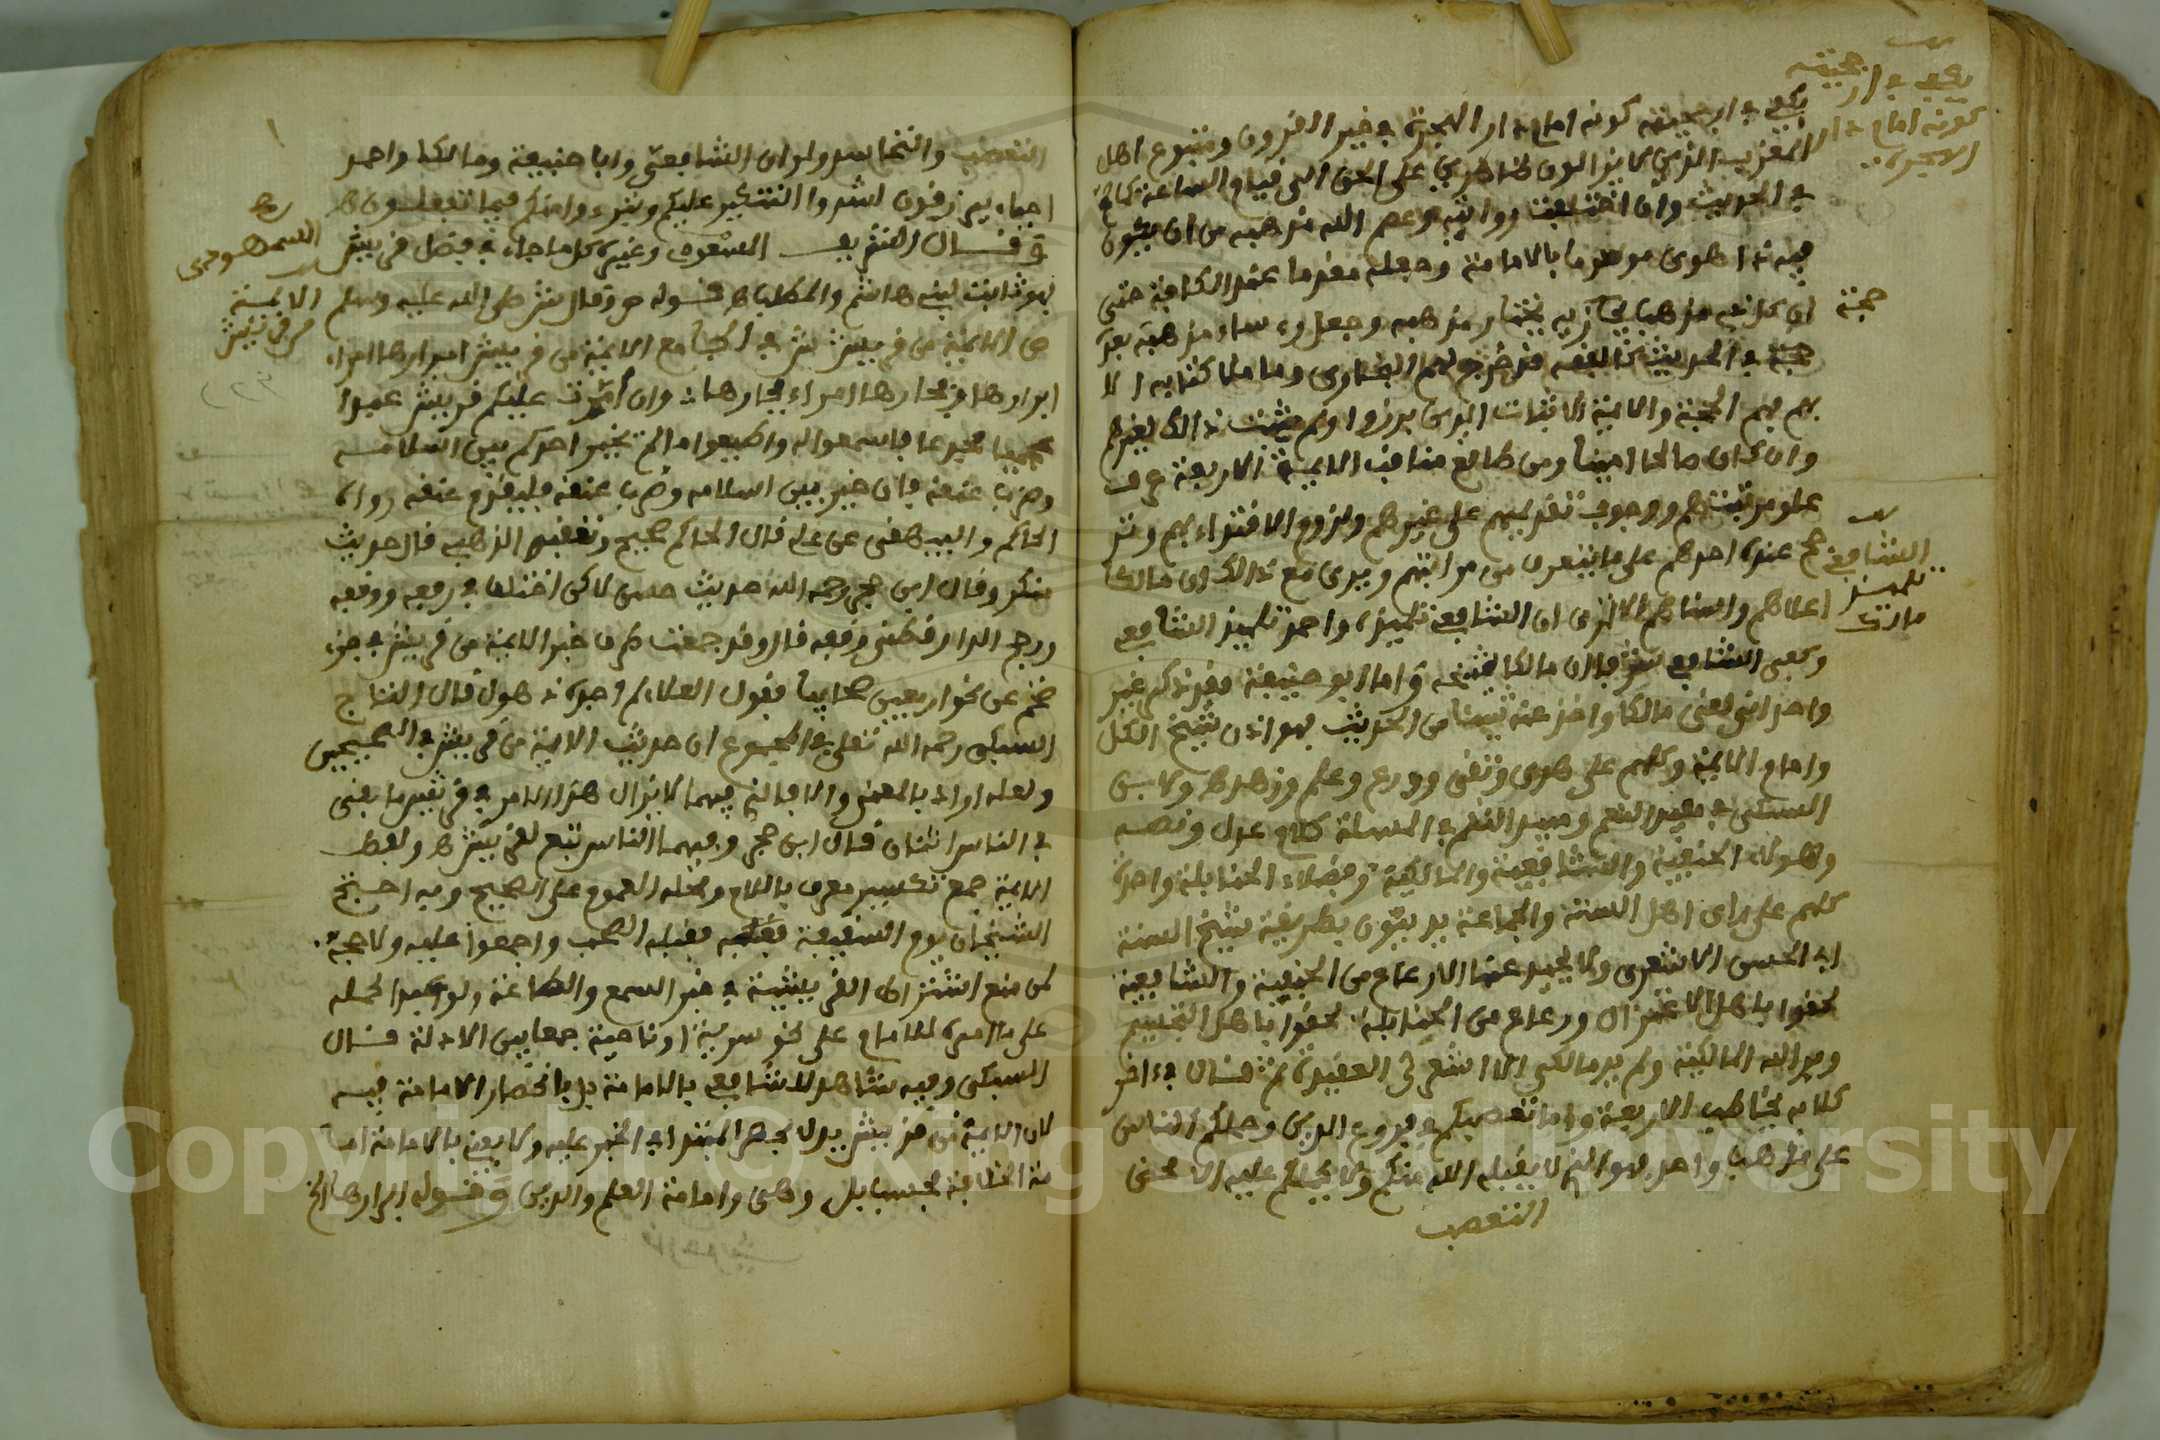 يكفي في ارجحيته كونه امام دار الهجرة في خير القرون ومتبوع اهل
المغرب الذين لا يزالون ظاهرين على الحق الى قيام الساعة كما
في الحديث وان اختلفت رواته وعصم الله مذهبه من ان يكون
فيه ذا هوى موسوما بالامامة وجعله مقدما عند الكافة حتى
ان كل ذي مذهب
في الحديث
بهم لهم الحجة والايمة الاثبات الذين برزوا ولم يثبت ذالك لغيرهم
وان كان صالحا امينا ومن طالع مناقب الايمة الاربعة عرف
علو مرتبتهم ووجوب تقديمهم على غيرهم ولزوم الاقتداء بهم
عنده احدهم على ما يتعرف من مراتبهم ويرى مع ذالك ان مالكا
اعلاهم واسناهم الا ترى ان الشافعي تلميذه واحمد تلميذ الشافعي
وكفى الشافعي شرفا ان مالكا شيخه واما ابو حنيفة فقد ذكر غير
واحد انه لقي مالكا واخذ عنه شيئا من الحديث فهو اذن شيخ الكل
وامام الايمة وكلهم على هدى وتقى وورع وعلم وزهد ولابن
السبكي في معيد النعم ومبيد النقم في المسلة كلام عدل ونصه
وهولاء الحنفية والشافعية والمالكية وفضلاء الحنابلة واحدة
كلهم على راى اهل السنة والجماعة يدينون بطريقة شيخ السنة
ابي الحسن الاشعري ولا يحيد عنها الا رعاع من الحنفية والشافعية
لحقوا باهل الاعتزال ورعاع من الحنابلة لحقوا باهل التجسيم
وبرا الله المالكية ولم ير مالكي الا اشعري العقيدة ثم قال في اخر
كلامه يخاطب الاربعة واما تعصبكم في فروع الدين وحملكم الناس
على مذهب واحد فهو الذي لا يقبله الله منكم ولا يحملكم عليه الا محض
التعصب
يكفي في ارجحيته
كونه امام دار
الهجرة
حجة
الشافعي
تلميذ
مالك
التعصب والتحاسد ولو ان الشافعي وابا حنيفة ومالكا واحمد
احياء يرزقون لشددوا النكير عليكم وتبرءوا منكم فيما تفعلون اهـ
وقال الشريف السمهودي وغيره كل ما جاء في فضل قريش
فهو ثابت لبني هاشم والمطلب اهـ قوله وقال صلى الله عليه وسلم الايمة
من قريش في الجامع الايمة من قريش ابرارها امراء
ابرارها وفجارها امراء فجارها وان امرت عليكم قريش عبدا
حبشيا مجدعا فاسمعوا له واطيعوا ما لم يخير احدكم بين اسلامه
وضرب عنقه فان خير بين اسلامه وضرب عنقه فليقدم عنقه رواه
الحاكم والبيهقي عن علي قال الحاكم صحيح وتعقبه الذهبي فقال حديث
منكر وقال ابن حجر رحمه الله حديث حسن لاكن اختلف في رفعه ووقفه
ورجح الدارقطني وقفه قال وقد جمعت طرق خبر الايمة من قريش في جزء
ضخم عن نحو اربعين صحابيا فقول العلاءي لم اجده ذهول قال التاج
السبكي رحمه الله تعلى في المجموع ان حديث الايمة من قريش في الصحيحين
ولعله اراد بالمعنى والا فالذي فيهما لا يزال هذا الامر في قريش ما بقي
في الناس اثنان قال ابن حجر وفيهما الناس تبع لقريش اهـ ولفظ
الايمة جمع تكسير معرف باللام ومحله العموم على الصحيح وبه احتج
الشيخان يوم السقيفة فقبله الصحب واجمعوا عليه ولا حجة
لمن منع اشتراط القرشية في خبر السمع والطاعة ولو عبدا لحمله
على من امره الامام على نحو سرية او ناحية جمعا بين الادلة قال
السبكي وفيه شاهد للشافعي بالامامة بل بانحصار الامامة فيه
لان الايمة من قريش يدل بحصر المبتدا في الخبر عليه ولا يعني بالامامة امامة
الخلافة فحسب بل وهي وامامة العلم والدين وقوله ابرارها الخ
السمهودي
الايمة
من قريش